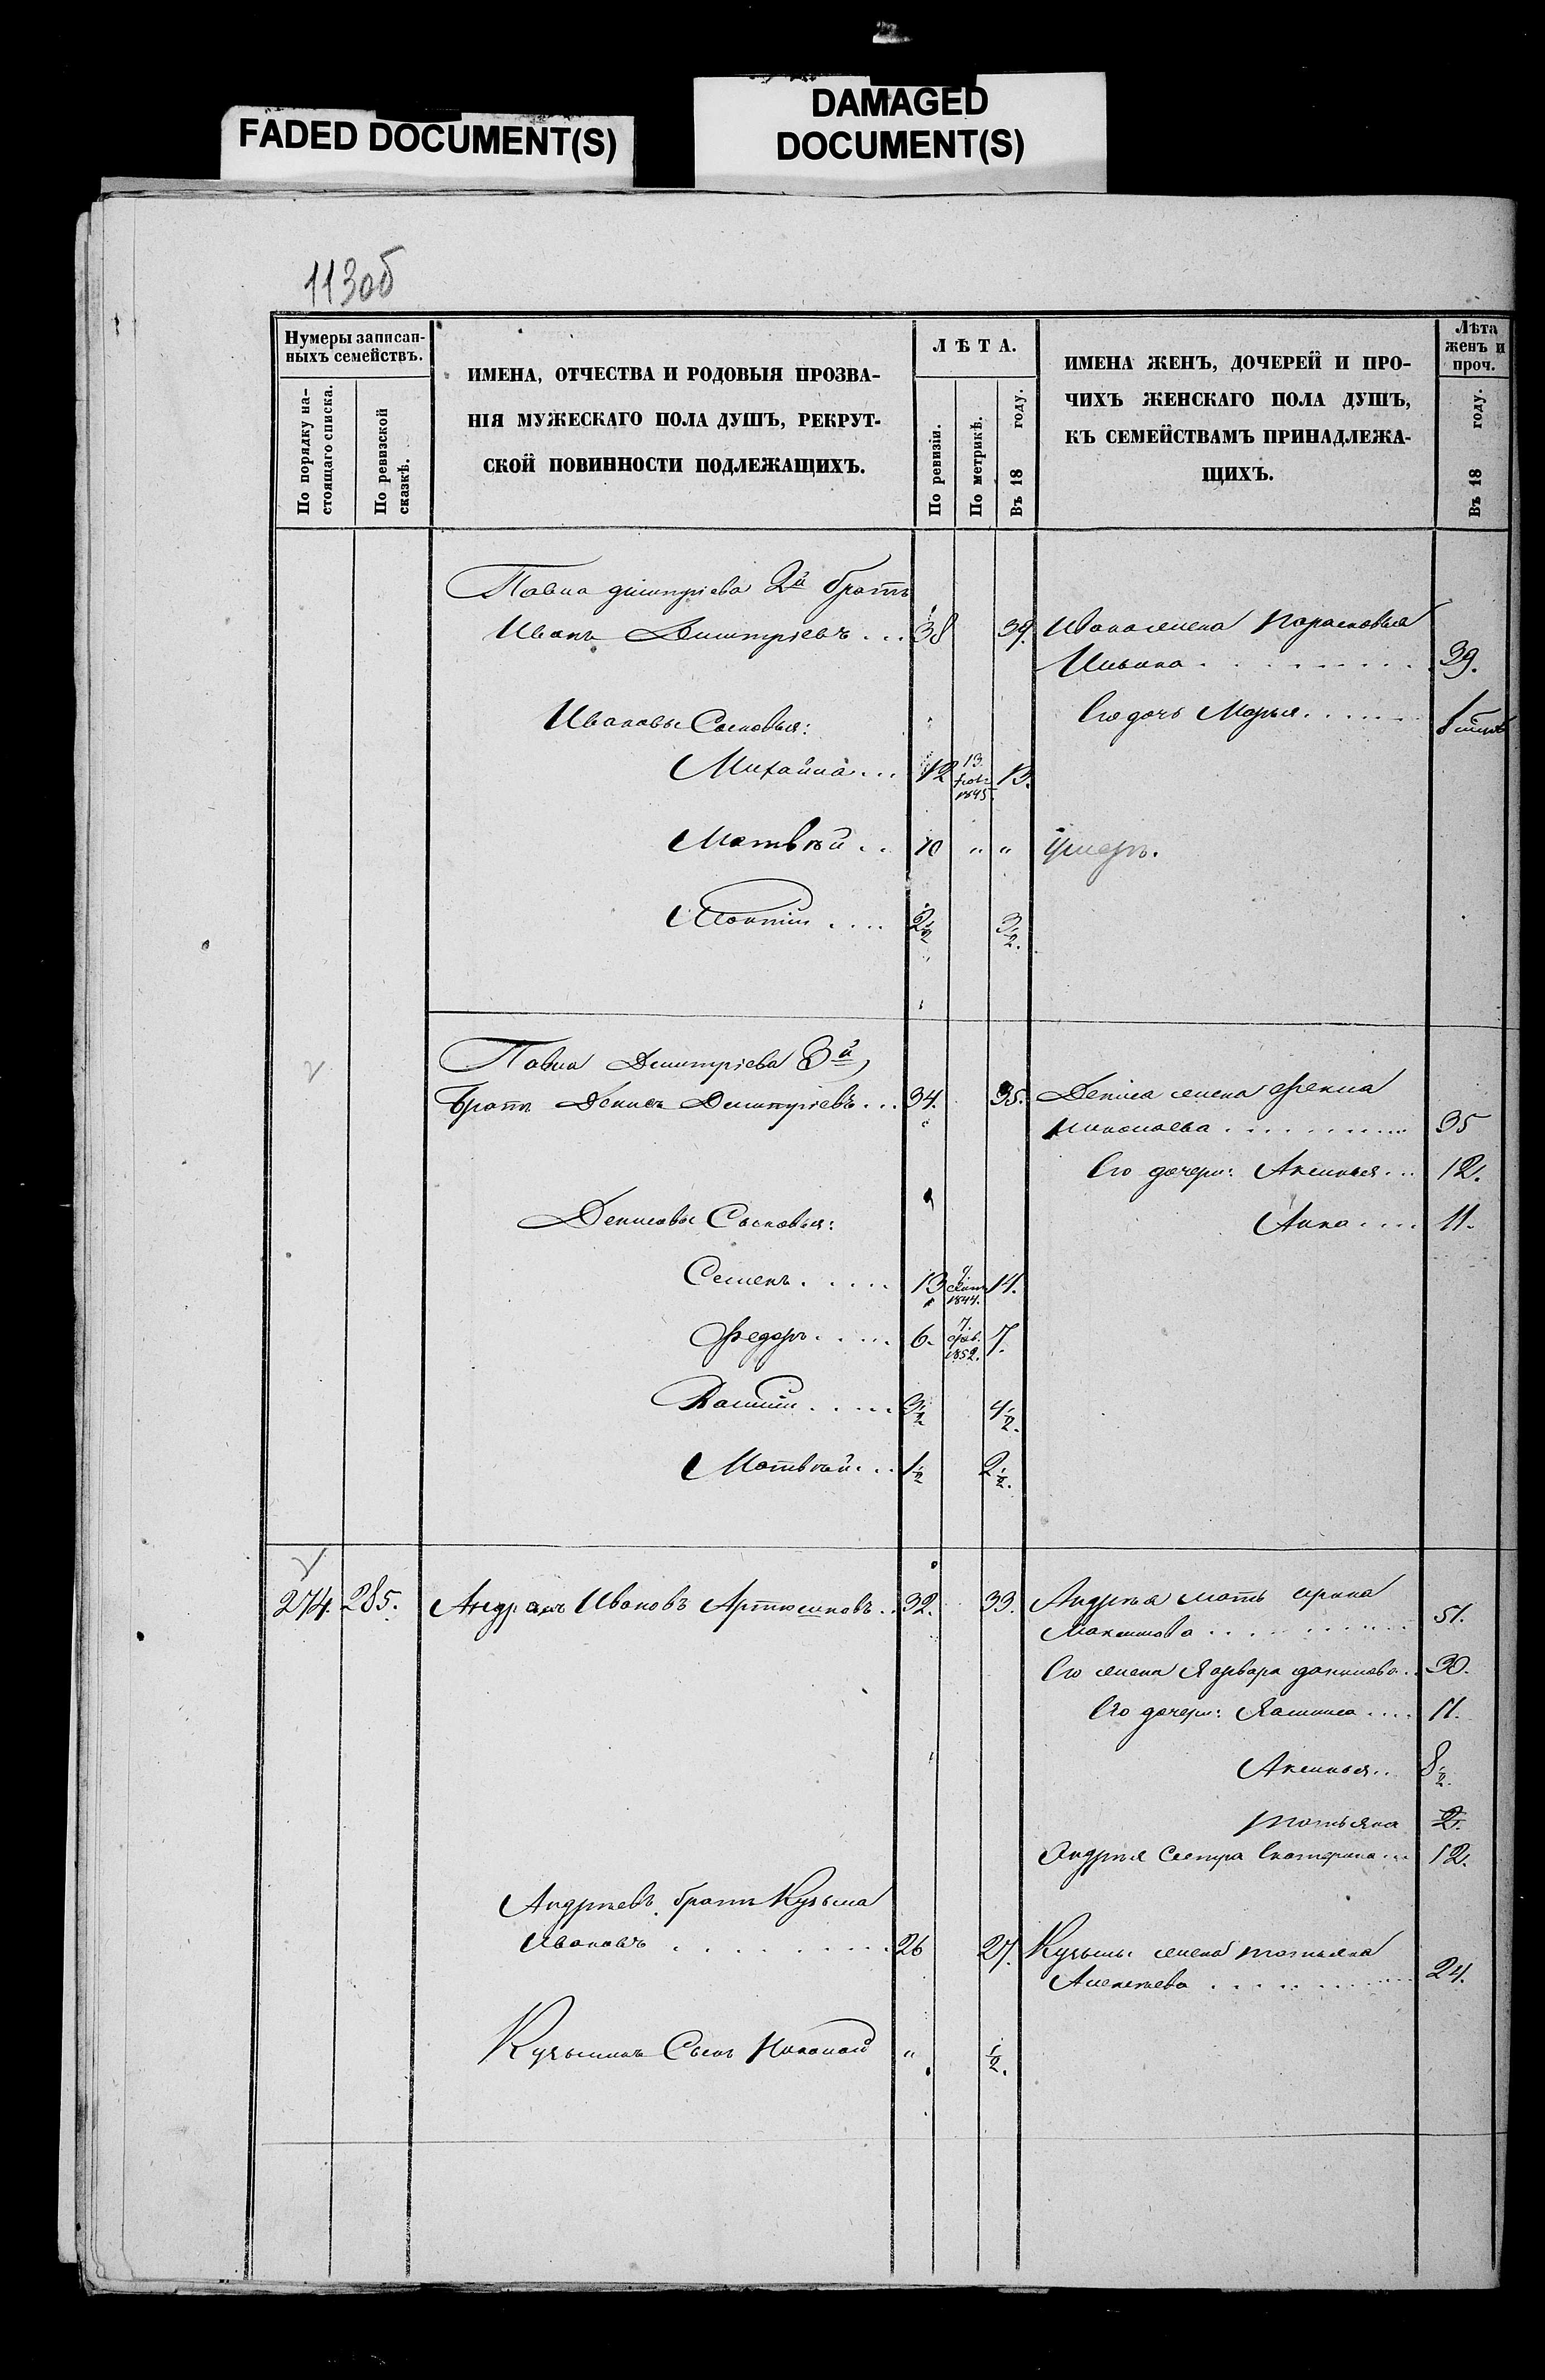 FADED DOCUMENT(S)
DAMAGED
DOCUMENT(S)
113об
Нумеры записан-
ныхъ семействъ.
По порядку на-
стоящаго списка.
По ревизской
сказкѣ.
ИМЕНА, ОТЧЕСТВА И РОДОВЫЯ ПРОЗВА-
НІЯ МУЖЕСКАГО ПОЛА ДУШЪ, РЕКРУТ-
СКОЙ ПОВИННОСТИ ПОДЛЕЖАЩИХЪ.
ЛѢТА.
По ревизіи.
По метрикѣ.
Въ 18 году.
ИМЕНА ЖЕНЪ, ДОЧЕРЕЙ И ПРО-
ЧИХЪ ЖЕНСКАГО ПОЛА ДУШЪ,
КЪ СЕМЕЙСТВАМЪ ПРИНАДЛЕЖА-
ЩИХЪ.
Лѣта
женъ и
проч.
Въ 18 году.
Павла Дмитріева 2й братъ
Иванъ Дмитріевъ . . . 38 39. Ивана жена Парасковья
Ильина . . . . . . . . . 39.
Ивановы Сыновья:
Его дочь Марья . . . . .
Михайла . . . 12 13 1845 13.
Матвѣй . . 10 " " Умеръ.
2½ 3½.
Павла Дмитріева 3й
Братъ Денисъ Дмитріевъ . . . 34. 35. Дениса жена Фекла
Николаева . . . . . . . . . 35
Его дочери: Аксинья . . . 12.
Денисовы Сыновья:
Анна . . . . 11.
Семенъ . . . . . 13 1844. 14.
Федоръ . . . . . 6. 7. 1852. 7.
3½ 4½.
Матвѣй . . . 1½ 2½.
274. 285. Андрей Ивановъ Артюшковъ . . 32. 33. Андрея мать Ирина
Максимова . . . . . . . . . 51.
Его жена Варвара Данилова . . 30.
Его дочери: . . . . 11.
Аксинья . . 8½.
Татьяна 2.
Андрея Сестра Екатерина . . . 12.
Андреевъ братъ Кузьма
Ивановъ . . . . . . . . 26 27. Кузьмы жена Татьяна
Алексѣева . . . . . . . . . 24.
Кузьминъ Сынъ Николай " ½.